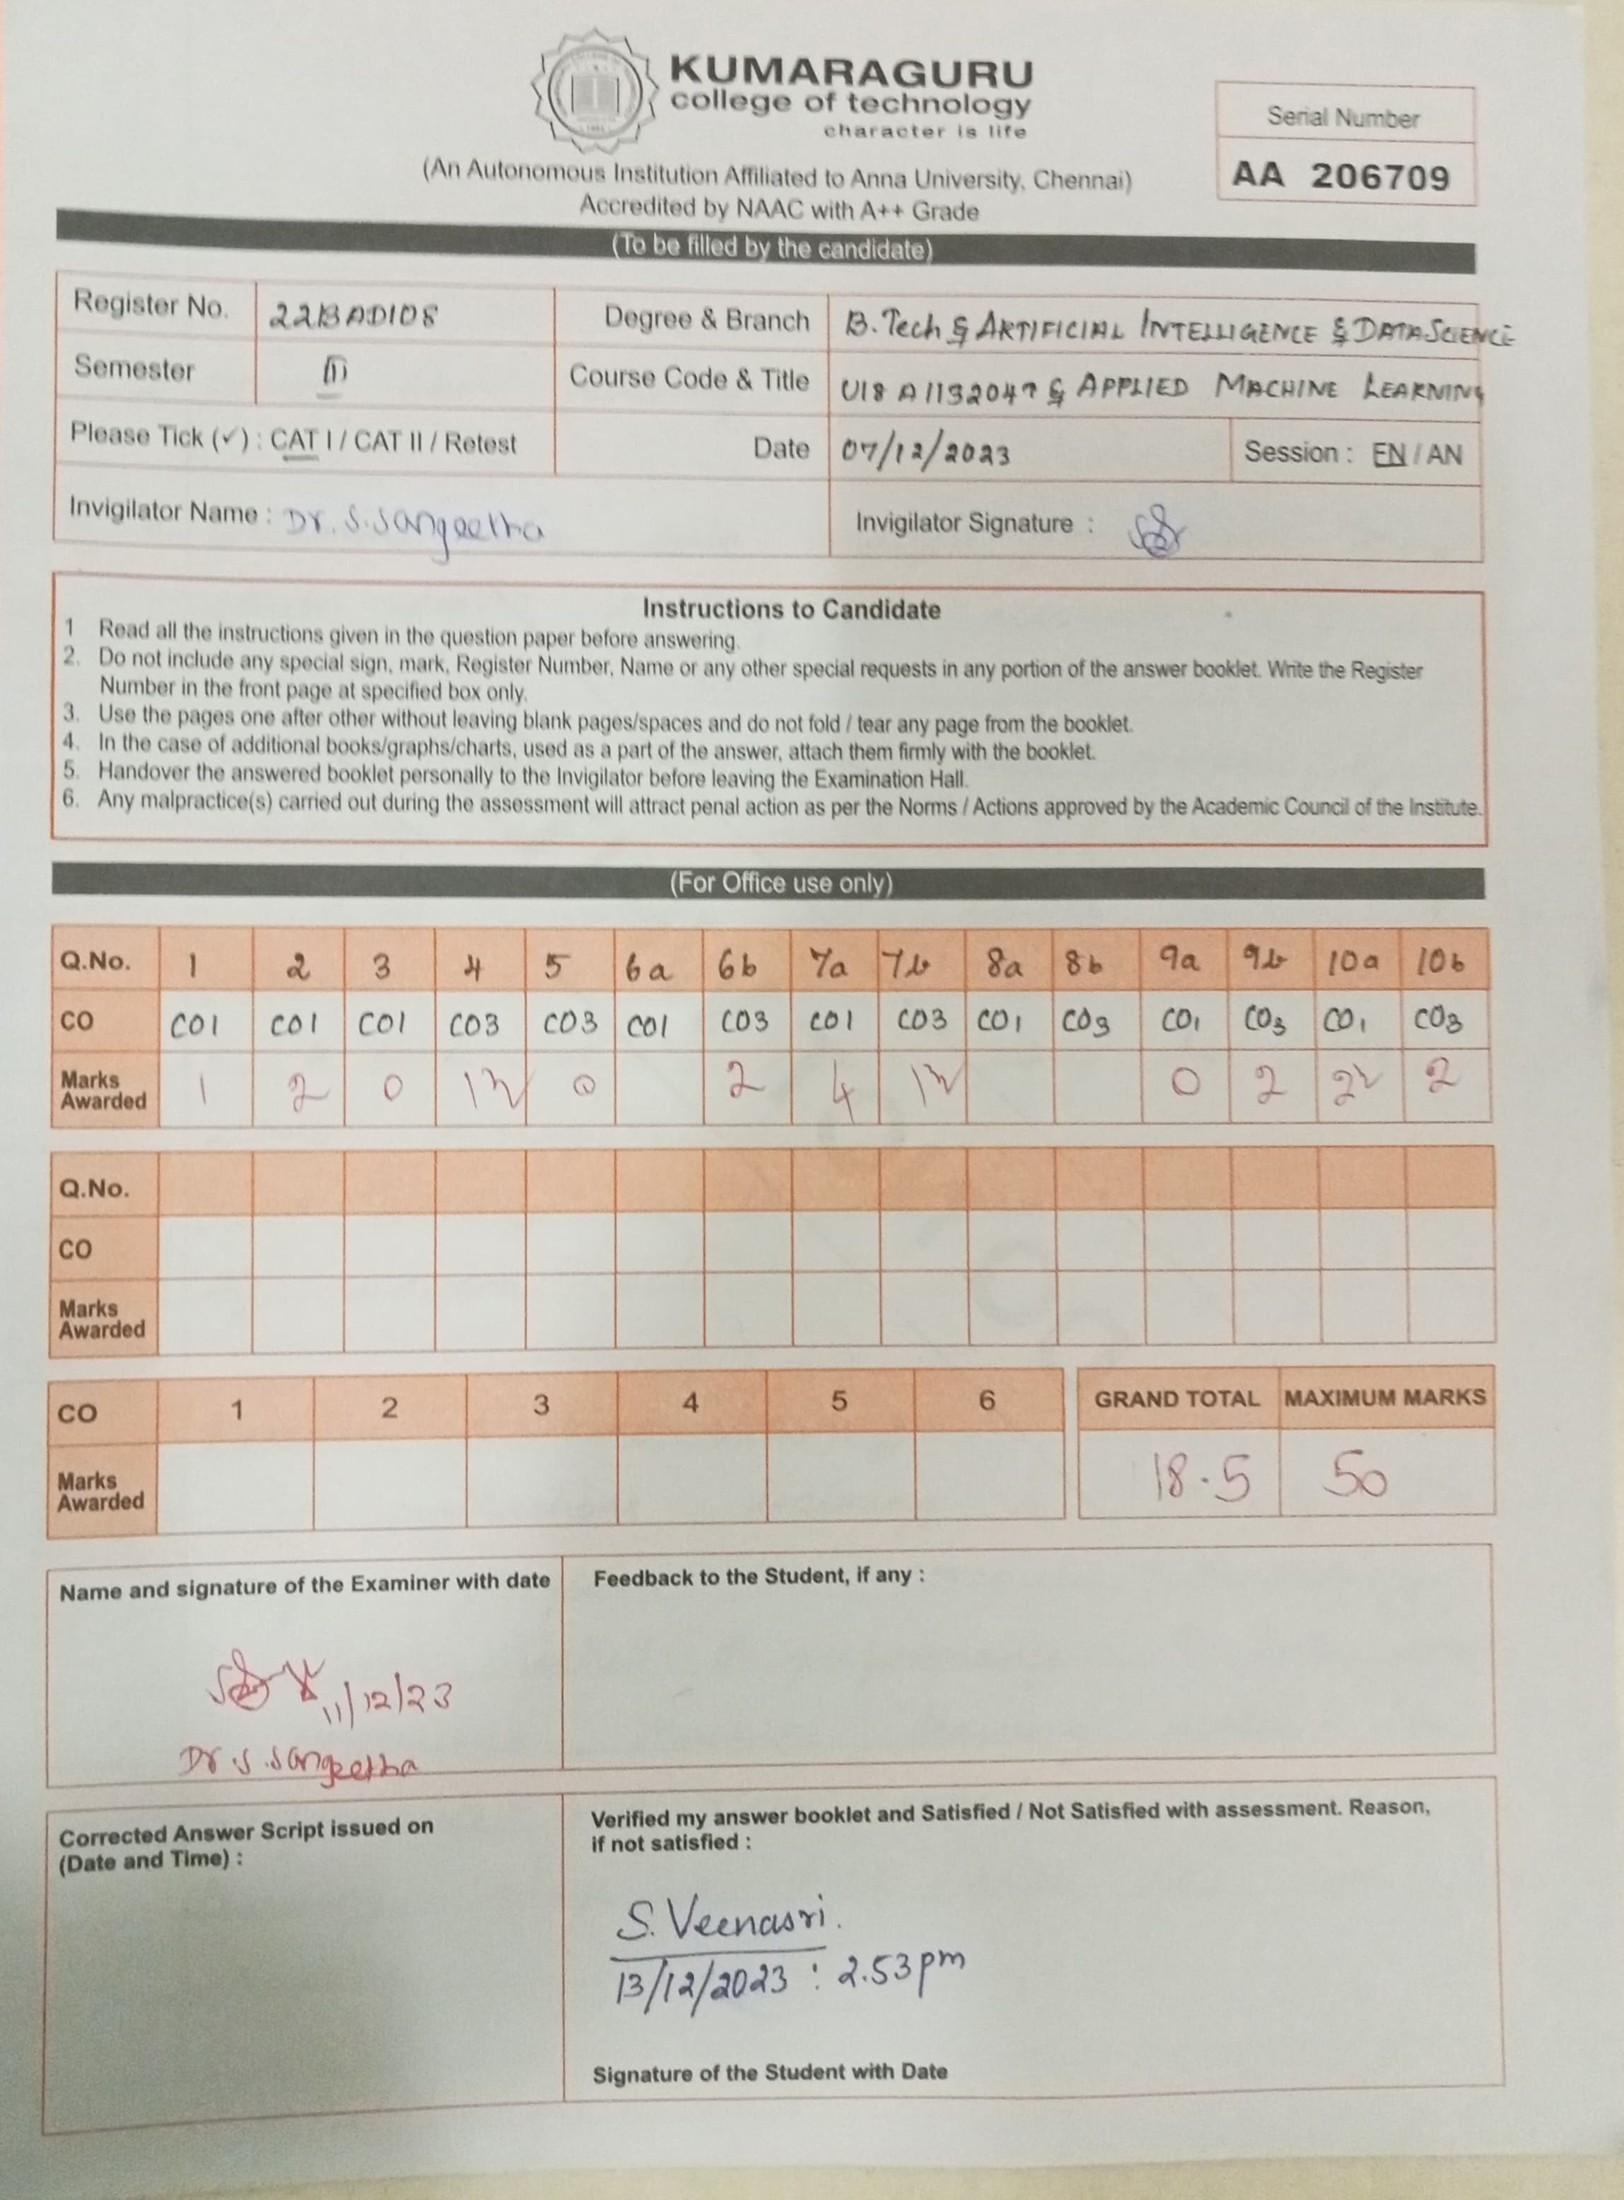 KUMARAGURU
college of technology
character is life
Serial Number
AA 206709
(An Autonomous Institution Affiliated to Anna University, Chennai)
Accredited by NAAC with A++ Grade
(To be filled by the candidate)
Register No. 22BAD108 Degree & Branch B.Tech & ARTIFICIAL INTELLIGENCE & DATA SCIENCE
Semester Course Code & Title & APPLIED MACHINE LEARNING
Please Tick (✓) : CAT I / CAT II / Retest Date 07/12/2023 Session : FN / AN
Invigilator Name : Dr. S. Sangeetha Invigilator Signature :
Instructions to Candidate
1 Read all the instructions given in the question paper before answering.
2. Do not include any special sign, mark, Register Number, Name or any other special requests in any portion of the answer booklet. Write the Register
Number in the front page at specified box only.
3. Use the pages one after other without leaving blank pages/spaces and do not fold / tear any page from the booklet.
4. In the case of additional books/graphs/charts, used as a part of the answer, attach them firmly with the booklet.
5. Handover the answered booklet personally to the Invigilator before leaving the Examination Hall.
6. Any malpractice(s) carried out during the assessment will attract penal action as per the Norms / Actions approved by the Academic Council of the Institute.
(For Office use only)
Q.No. 1 2 3 4 5 6a 6b 7a 7b 8a 8b 9a 9b 10a 10b
CO CO1 CO1 CO1 CO3 CO3 CO1 CO3 CO1 CO3 CO1 CO3 CO1 CO3 CO1 CO3
Marks Awarded 1 2 0 0 2 4 0 2 2
Q.No.
CO
Marks Awarded
CO 1 2 3 4 5 6 GRAND TOTAL MAXIMUM MARKS
Marks Awarded 18.5 50
Name and signature of the Examiner with date
11/12/23
Dr S. Sangeetha
Feedback to the Student, if any :
Corrected Answer Script issued on
(Date and Time) :
Verified my answer booklet and Satisfied / Not Satisfied with assessment. Reason,
if not satisfied :
S. Veenasri.
13/12/2023 : 2.53pm
Signature of the Student with Date